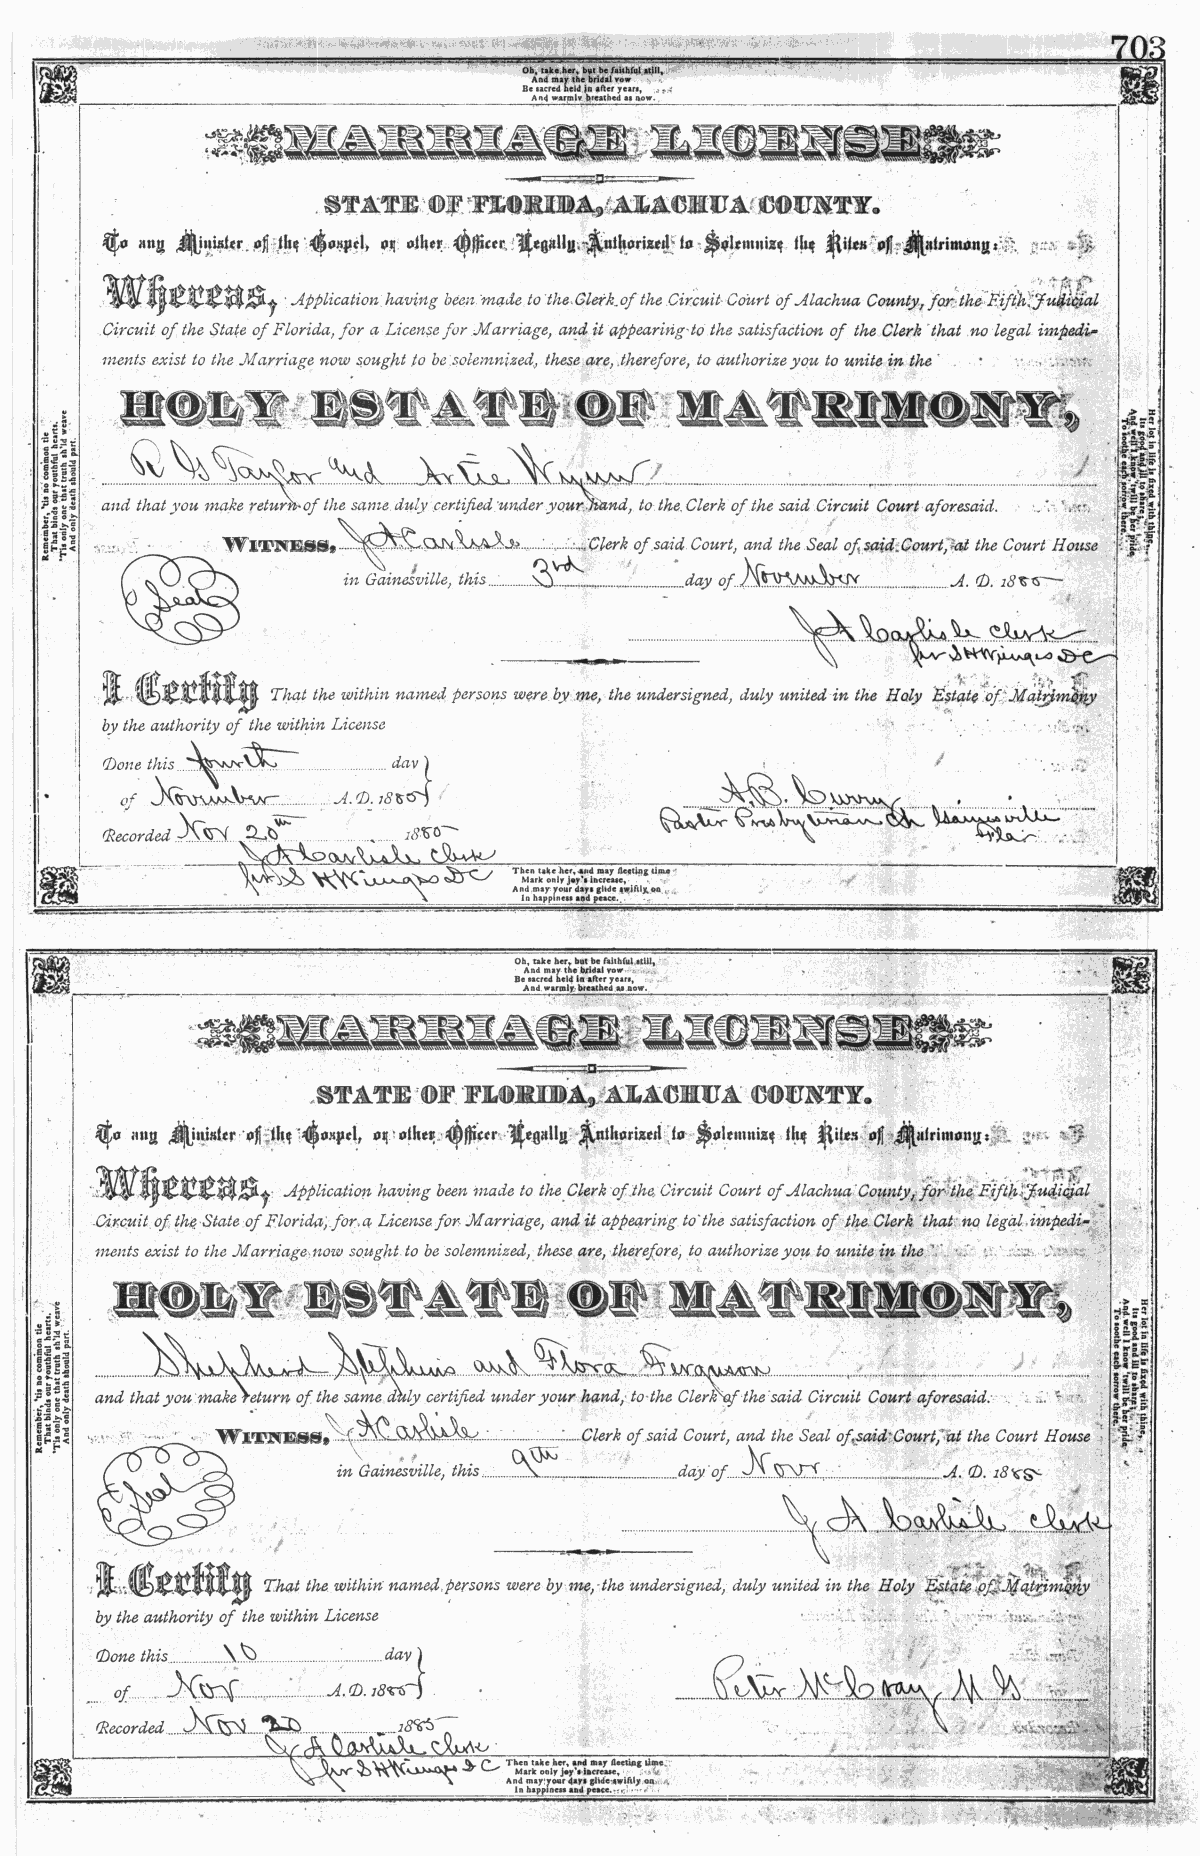 703
Oh, take her, but be faithful still,
And may the bridal vow
Be sacred held in after years,
And warmly breathed as now.
MARRIAGE LICENSE
STATE OF FLORIDA, ALACHUA COUNTY.
To any Minister of the Gospel, or other Officer Legally Authorized to Solemnize the Rites of Matrimony:
Whereas, Application having been made to the Clerk of the Circuit Court of Alachua County, for the Fifth Judicial
Circuit of the State of Florida, for a License for Marriage, and it appearing to the satisfaction of the Clerk that no legal impedi-
ments exist to the Marriage now sought to be solemnized, these are, therefore, to authorize you to unite in the
HOLY ESTATE OF MATRIMONY,
R G Taylor and Artie Wynn
and that you make return of the same duly certified under your hand, to the Clerk of the said Circuit Court aforesaid.
WITNESS, J A Carlisle Clerk of said Court, and the Seal of said Court, at the Court House
in Gainesville, this 3rd day of November A. D. 1885
Seal
J A Carlisle Clerk
per S H Wienges D C
I Certify That the within named persons were by me, the undersigned, duly united in the Holy Estate of Matrimony
by the authority of the within License
Done this fourth day
of November A. D. 1885
A. B. Curry
Pastor Presbyterian Ch Gainesville
Fla
Recorded Nov 20th 1885
J A Carlisle Clerk
per S H Wienges D C
Then take her, and may fleeting time
Mark only joy's increase,
And may your days glide swiftly on
In happiness and peace.
Remember, 'tis no common tie
That binds our youthful hearts,
'Tis only one that truth sh'ld weave
And only death should part.
Her lot in life is fixed with thine,
Its good and ill to share;
And well I know 'twill be her pride
To soothe each sorrow there.
Oh, take her, but be faithful still,
And may the bridal vow
Be sacred held in after years,
And warmly breathed as now.
MARRIAGE LICENSE
STATE OF FLORIDA, ALACHUA COUNTY.
To any Minister of the Gospel, or other Officer Legally Authorized to Solemnize the Rites of Matrimony:
Whereas, Application having been made to the Clerk of the Circuit Court of Alachua County, for the Fifth Judicial
Circuit of the State of Florida, for a License for Marriage, and it appearing to the satisfaction of the Clerk that no legal impedi-
ments exist to the Marriage now sought to be solemnized, these are, therefore, to authorize you to unite in the
HOLY ESTATE OF MATRIMONY,
Shepherd Stephens and Flora Ferguson
and that you make return of the same duly certified under your hand, to the Clerk of the said Circuit Court aforesaid.
WITNESS, J A Carlisle Clerk of said Court, and the Seal of said Court, at the Court House
in Gainesville, this 9th day of Novr A. D. 1885
Seal
J A Carlisle Clerk
I Certify That the within named persons were by me, the undersigned, duly united in the Holy Estate of Matrimony
by the authority of the within License
Done this 10 day
of Nov A. D. 1885
Peter McCray M G
Recorded Nov 20 1885
J A Carlisle Clerk
per S H Wienges D C
Then take her, and may fleeting time
Mark only joy's increase,
And may your days glide swiftly on
In happiness and peace.
Remember, 'tis no common tie
That binds our youthful hearts,
'Tis only one that truth sh'ld weave
And only death should part.
Her lot in life is fixed with thine,
Its good and ill to share;
And well I know 'twill be her pride
To soothe each sorrow there.